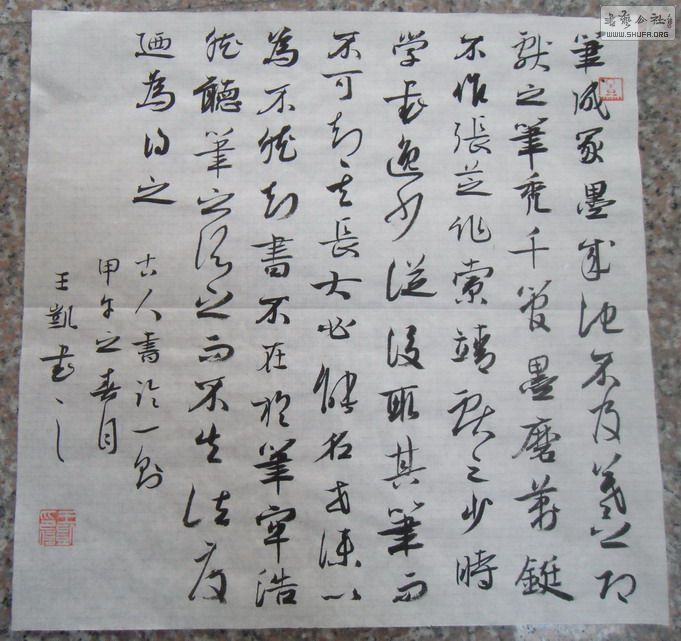 筆成冢墨成池不及羲之即
獻之筆禿千管墨磨萬鋌
不作張芝作索靖獻之少時
学書逸少從後取其筆而
不可知其長大必能名世僕以
為不然知書不在於筆牢浩
然聽筆之所之而不失法度
廼為得之
古人書論一則
甲午之春月
王凱書
書藝公社
WWW.SHUFA.ORG